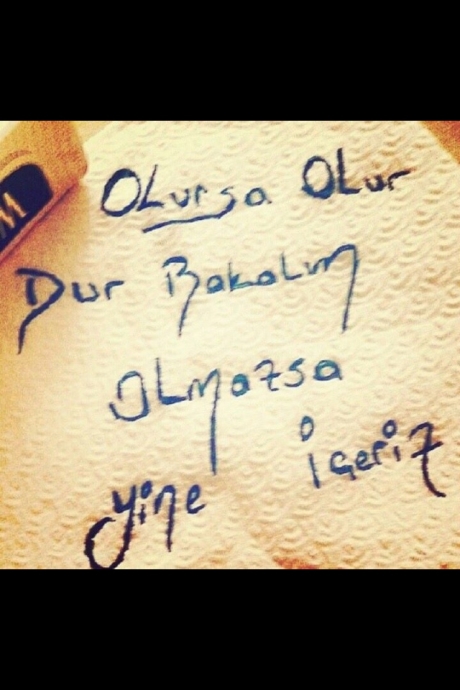 OLursa OLur
Dur BakaLım
OLmazsa
yine içeriz
M